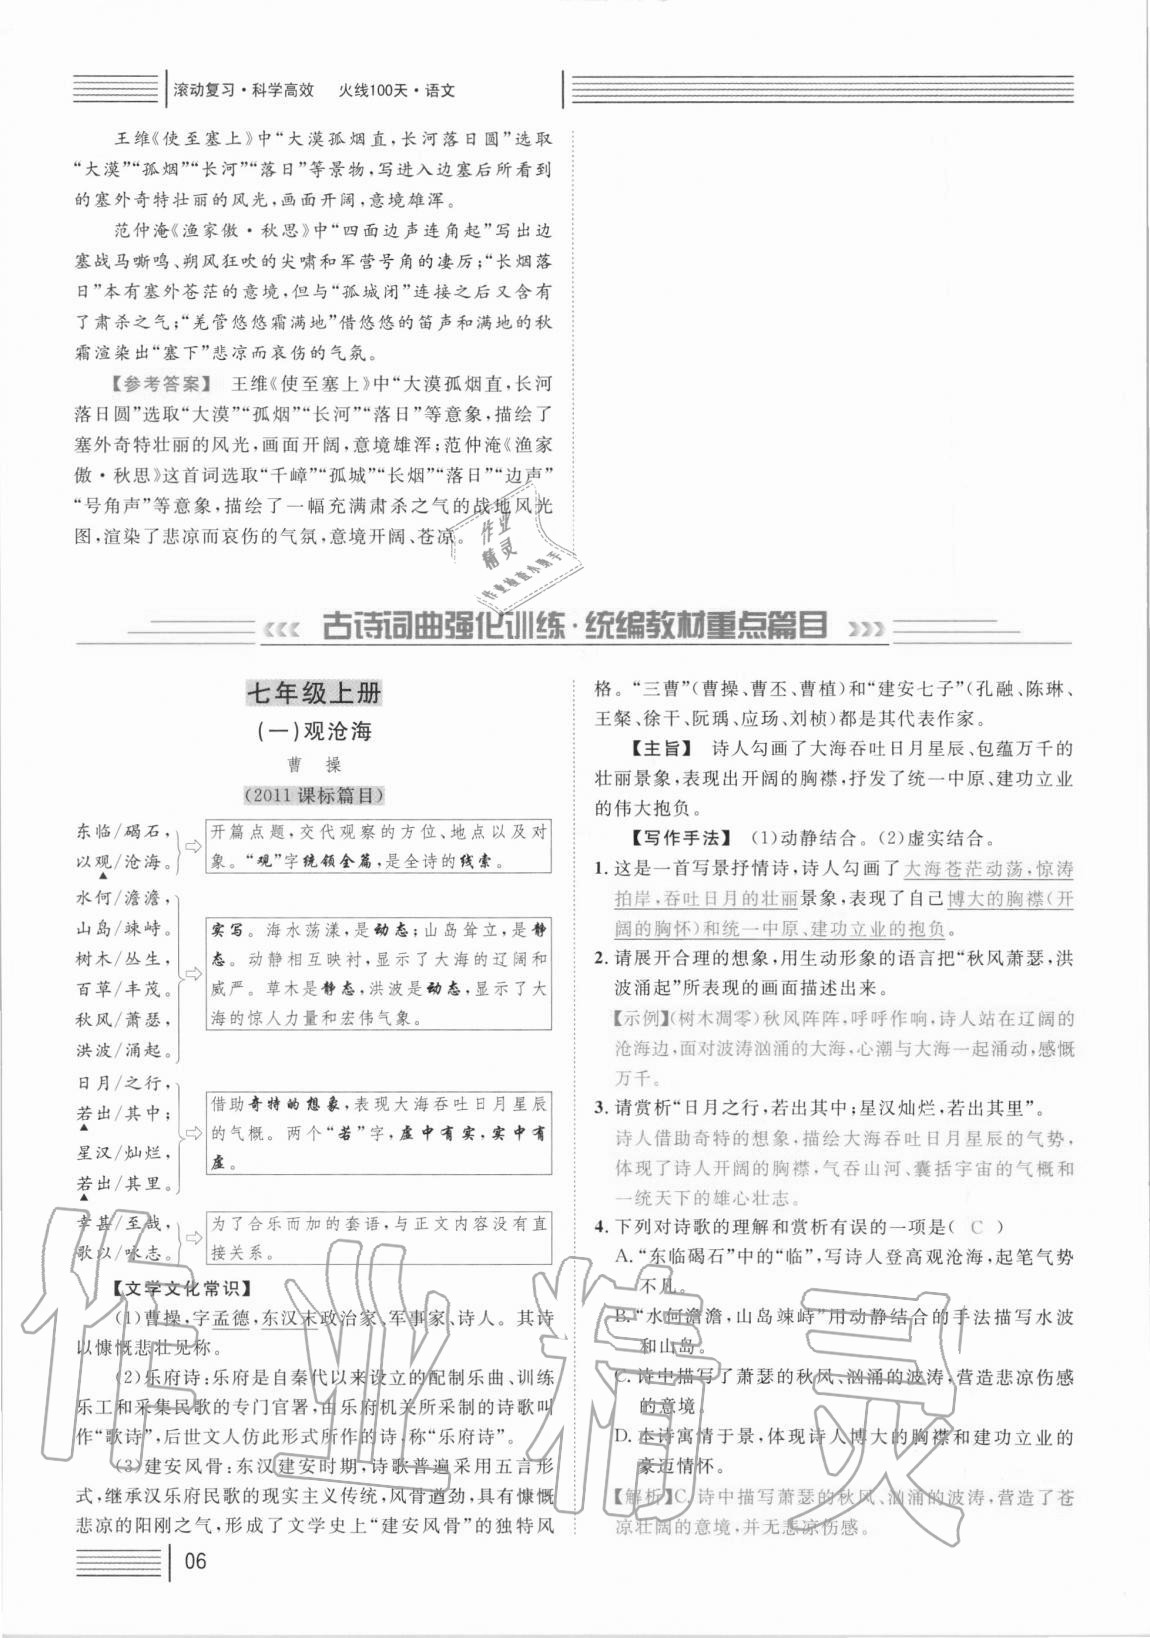 滚动复习·科学高效 火线100天·语文
王维《使至塞上》中“大漠孤烟直,长河落日圆”选取
“大漠”“孤烟”“长河”“落日”等景物,写进入边塞后所看到
的塞外奇特壮丽的风光,画面开阔,意境雄浑。
范仲淹《渔家傲·秋思》中“四面边声连角起”写出边
塞战马嘶鸣、朔风狂吹的尖啸和军营号角的凄厉;“长烟落
日”本有塞外苍茫的意境,但与“孤城闭”连接之后又含有
了肃杀之气;“羌管悠悠霜满地”借悠悠的笛声和满地的秋
霜渲染出“塞下”悲凉而哀伤的气氛。
【参考答案】 王维《使至塞上》中“大漠孤烟直,长河
落日圆”选取“大漠”“孤烟”“长河”“落日”等意象,描绘了
塞外奇特壮丽的风光,画面开阔,意境雄浑;范仲淹《渔家
傲·秋思》这首词选取“千嶂”“孤城”“长烟”“落日”“边声”
“号角声”等意象,描绘了一幅充满肃杀之气的战地风光
图,渲染了悲凉而哀伤的气氛,意境开阔、苍凉。
古诗词曲强化训练·统编教材重点篇目
七年级上册
(一)观沧海
曹 操
(2011课标篇目)
东临/碣石,
以观/沧海。
开篇点题,交代观察的方位、地点以及对
象。“观”字统领全篇,是全诗的线索。
水何/澹澹,
山岛/竦峙。
树木/丛生,
百草/丰茂。
秋风/萧瑟,
洪波/涌起。
实写。海水荡漾,是动态;山岛耸立,是静
态。动静相互映衬,显示了大海的辽阔和
威严。草木是静态,洪波是动态,显示了大
海的惊人力量和宏伟气象。
日月/之行,
若出/其中;
星汉/灿烂,
若出/其里。
借助奇特的想象,表现大海吞吐日月星辰
的气概。两个“若”字,虚中有实,实中有
虚。
幸甚/至哉,
歌以/咏志。
为了合乐而加的套语,与正文内容没有直
接关系。
【文学文化常识】
(1)曹操,字孟德,东汉末政治家、军事家、诗人。其诗
以慷慨悲壮见称。
(2)乐府诗:乐府是自秦代以来设立的配制乐曲、训练
乐工和采集民歌的专门官署,由乐府机关所采制的诗歌叫
作“歌诗”,后世文人仿此形式所作的诗,称“乐府诗”。
(3)建安风骨:东汉建安时期,诗歌普遍采用五言形
式,继承汉乐府民歌的现实主义传统,风骨遒劲,具有慷慨
悲凉的阳刚之气,形成了文学史上“建安风骨”的独特风
格。“三曹”(曹操、曹丕、曹植)和“建安七子”(孔融、陈琳、
王粲、徐干、阮瑀、应玚、刘桢)都是其代表作家。
【主旨】 诗人勾画了大海吞吐日月星辰、包蕴万千的
壮丽景象,表现出开阔的胸襟,抒发了统一中原、建功立业
的伟大抱负。
【写作手法】 (1)动静结合。(2)虚实结合。
1. 这是一首写景抒情诗,诗人勾画了大海苍茫动荡,惊涛
拍岸,吞吐日月的壮丽景象,表现了自己博大的胸襟(开
阔的胸怀)和统一中原、建功立业的抱负。
2. 请展开合理的想象,用生动形象的语言把“秋风萧瑟,洪
波涌起”所表现的画面描述出来。
【示例】(树木凋零)秋风阵阵,呼呼作响,诗人站在辽阔的
沧海边,面对波涛汹涌的大海,心潮与大海一起涌动,感慨
万千。
3. 请赏析“日月之行,若出其中;星汉灿烂,若出其里”。
诗人借助奇特的想象,描绘大海吞吐日月星辰的气势,
体现了诗人开阔的胸襟,气吞山河、囊括宇宙的气概和
一统天下的雄心壮志。
4. 下列对诗歌的理解和赏析有误的一项是( C )
A. “东临碣石”中的“临”,写诗人登高观沧海,起笔气势
不凡。
B. “水何澹澹,山岛竦峙”用动静结合的手法描写水波
和山岛。
C. 诗中描写了萧瑟的秋风、汹涌的波涛,营造悲凉伤感
的意境。
D. 本诗寓情于景,体现诗人博大的胸襟和建功立业的
豪迈情怀。
【解析】C. 诗中描写萧瑟的秋风、汹涌的波涛,营造了苍
凉壮阔的意境,并无悲凉伤感。
06
作业精灵
作业
精灵
作业检查小助手